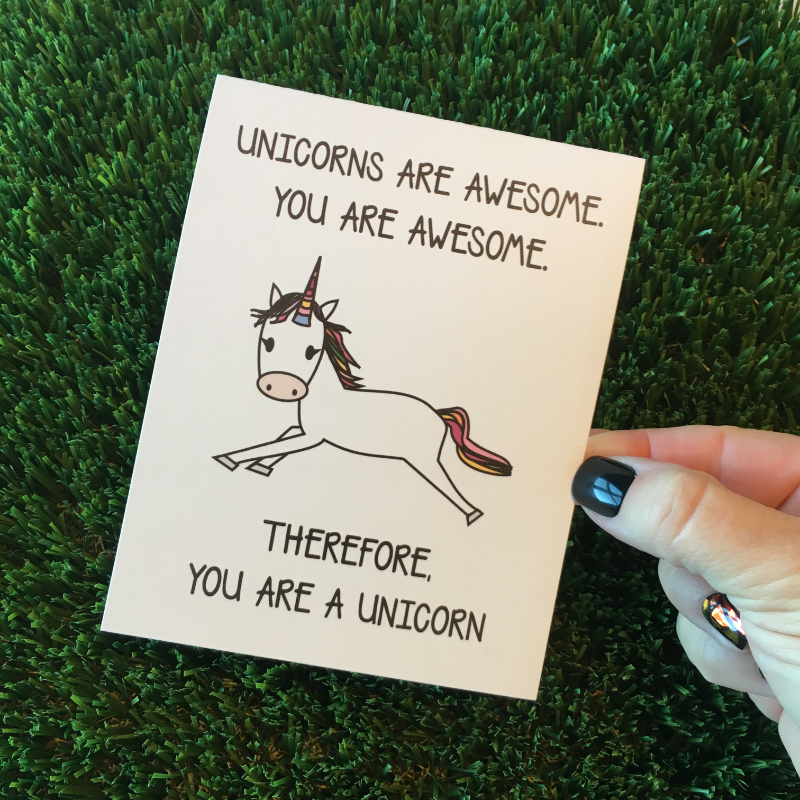 UNICORNS ARE AWESOME.
YOU ARE AWESOME.
THEREFORE,
YOU ARE A UNICORN